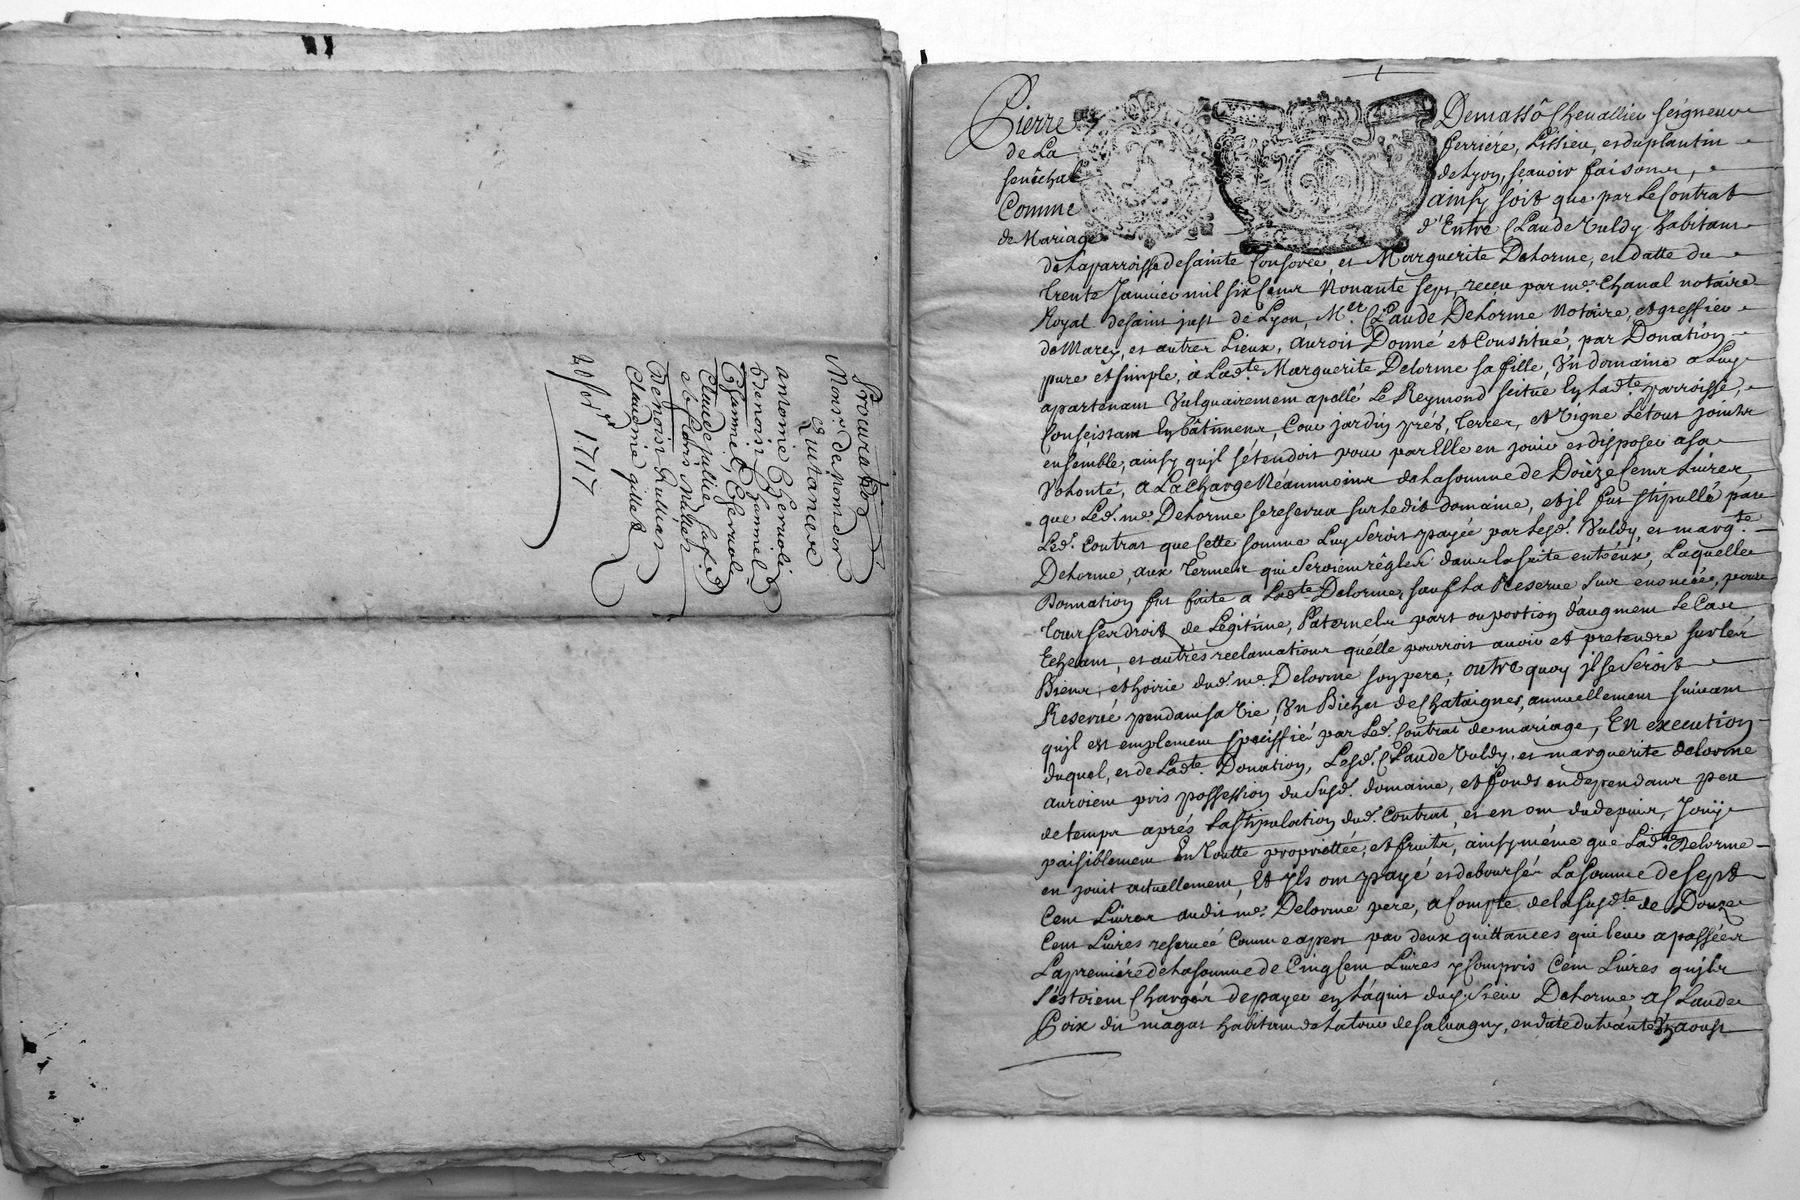 Procuration
Quitance
Mons.r de pomedon
antoinne Chervolin
Benoist Chaumel
Claude jullien
Benoist Rullier
Claudine gillet
20 7bre 1717
Pierre Demassô Chevallier Seigneur
de La ferriére, Lissieu, et du plantin
senêchal de Lyon, sçavoir faisons,
Comme ainsy soit que par Le Contrat
de Mariage d'Entre Claude Vuldy habitant
de La parroisse de sainte Consorce, et Marguerite Delorme, en datte du
trente Janvier mil six Cent Nonante sept, receu par me. Chanal notaire
Royal de saint just de Lyon, Mer. Claude Delorme Notaire, et greffier
de Marcy, et autres Lieux, auroit Donné et Constitué, par Donation
pure et simple, à Ladte. Marguerite Delorme sa fille, Vn domaine a Luy
apartenant Vulguairement apellé Le Reymond scitué en Ladte. parroisse,
Conscistant en bâtiments, Cour jardin prés, terres, et Vigne Le tout joints
ensemble, ainsy qu'jl s'étendoit pour par Elle en jouir et disposer a sa
Volonté, a La Charge Néanmoins de La somme de Douze Cent Livres
que Led. me. Delorme se reserva sur Ledit domaine, et jl fut stipullé par
Led. Contrat que Cette somme Luy Seroit payée par Lesd. Vuldy, et margte.
Delorme, aux termes qui Seroient réglés dans la suite entreux, Laquelle
Donnation fut faite a Ladte. Delorme, sauf La Reserve sus enoncée, pour
tous ses droits de Légitime, Paternels part ou portion d'augment Le Cas
Echeant, et autres reclamations quélle pourroit avoir et pretendre sur Les
Biens, et hoirie dud. me. Delorme son pere; outre quoy jl se Seroit
Reservé pendant sa Vie, Vn Bichet de Chataignes, annuellement suivant
qujl est emplement speciffié par Led. Contrat de mariage, En execution
duquel, et de Ladte. Donation, Lesd. Claude Vuldy, et marguerite delorme
auroient pris possession du Susd. domaine, et fonds en dependant peu
de temps aprés La stipulation dud. Contrat, et en ont du depuis, Jouÿ
paisiblement En toutte proprietée, et fruits, ainsy même que Ladte. Delorme
en jouit actuellement, Et jls ont payé et deboursé La somme de sept
Cent Livres audit me. Delorme pere, a Compte de La susdte. de Douze
Cent Livres reservée Comme apert par deux quittances qui leur a passées
La premiére de La somme de Cinq Cent Livres y Compris Cent Livres qujls
s'éstoient Chargés de payer en L'aquit dud. Sieur Delorme a Claude
Poix dit magat habitant de La tour de salvagny, en date du trante Vn aoust